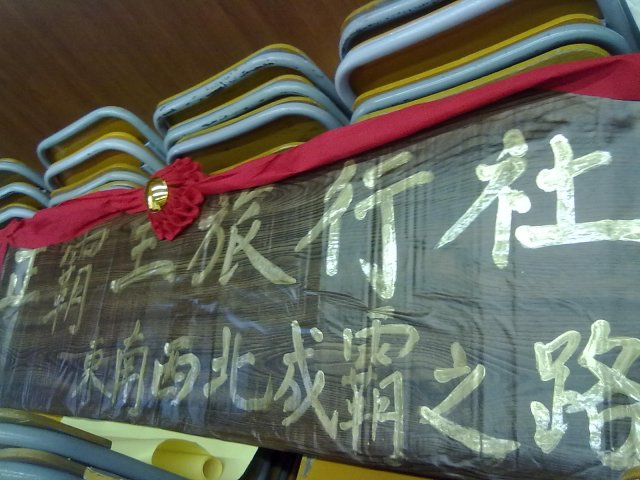 霸王旅行社
東南西北成霸之路